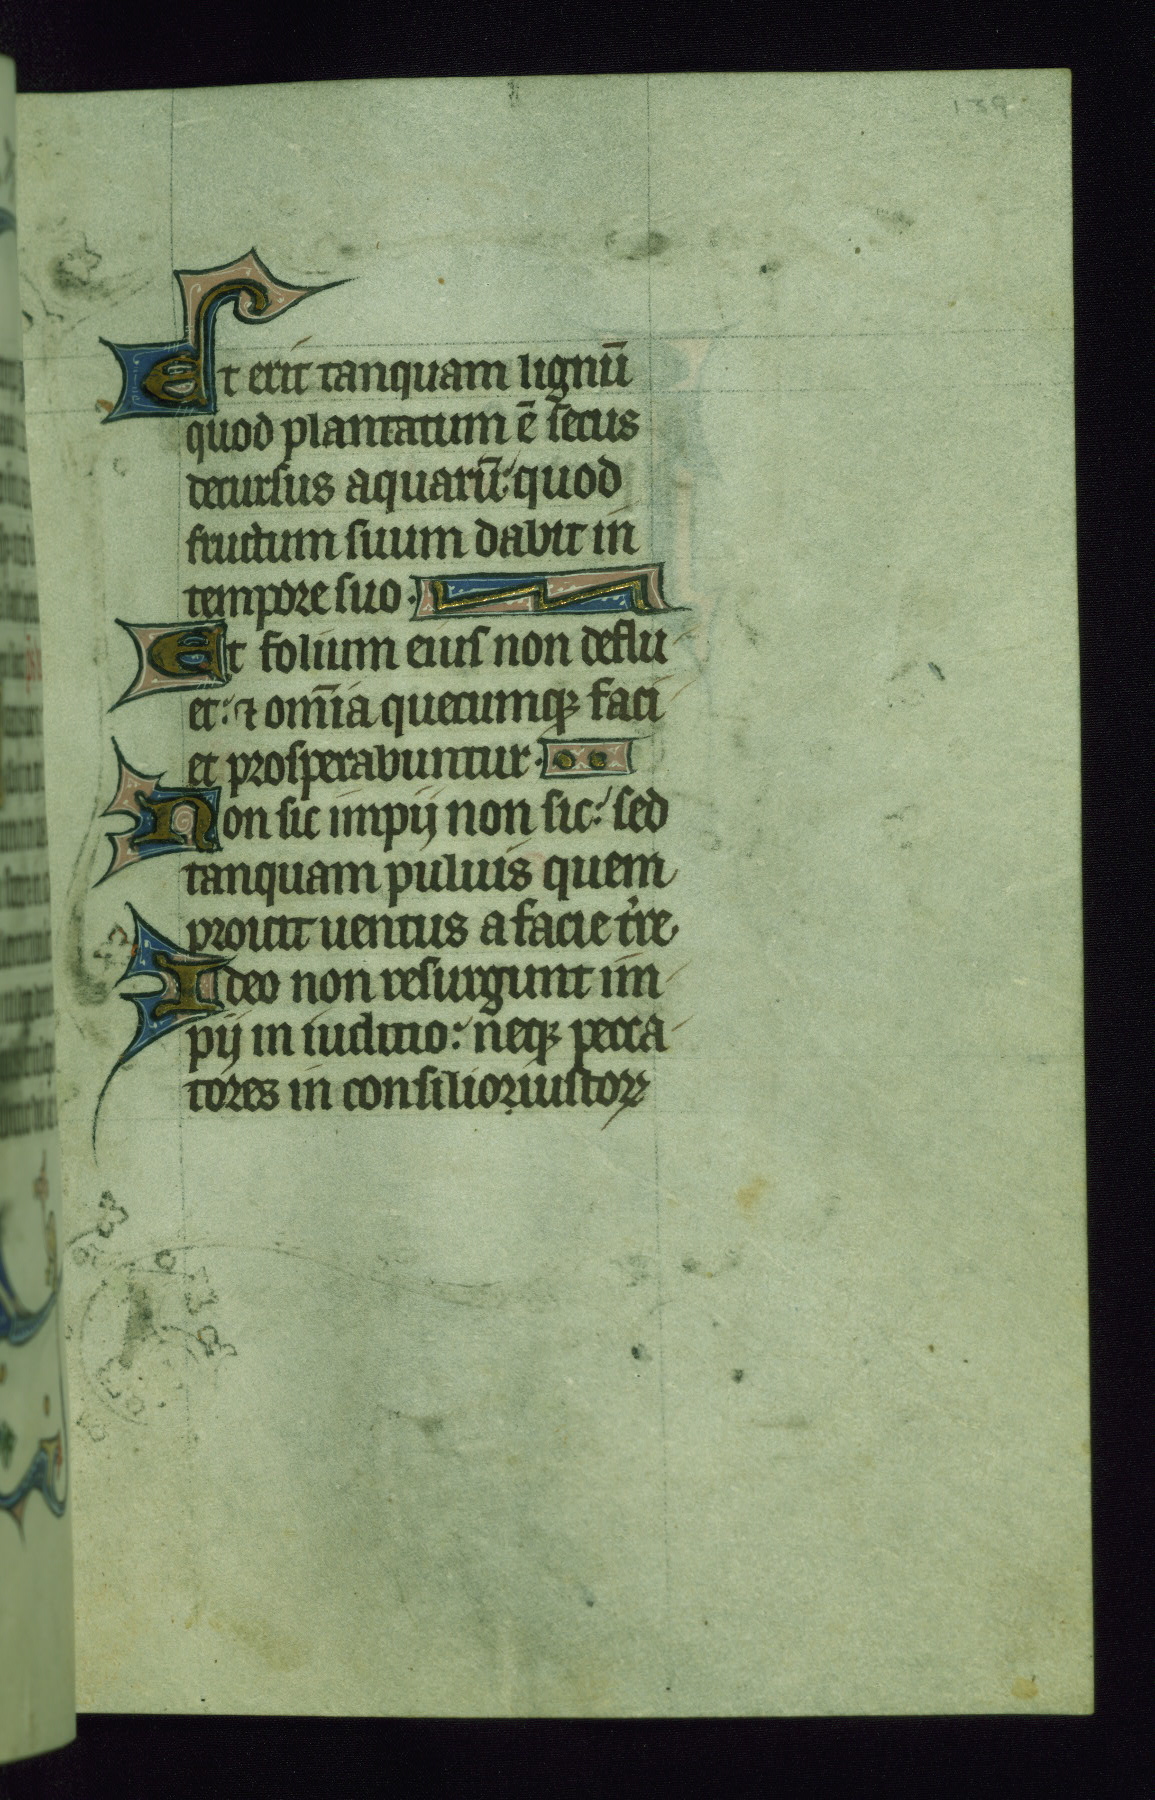 159
Et erit tanquam lignū
quod plantatum ē secus
decursus aquarū: quod
fructum suum dabit in
tempore suo.
Et folium eius non deflu
et: ⁊ om̄ia quecumqꝫ faci
et prosperabuntur.
Non sic impij non sic: sed
tanquam puluis quem
proicit uentus a facie t̉re
Ideo non resurgunt im
pij in iudicio: neqꝫ pecca
tores in consilio iustoꝝ